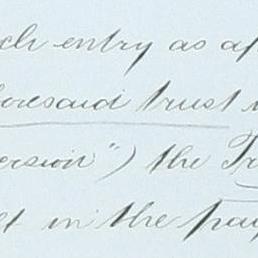 ch entry as af
foresaid trust
ersion") the Tr
t in the pay